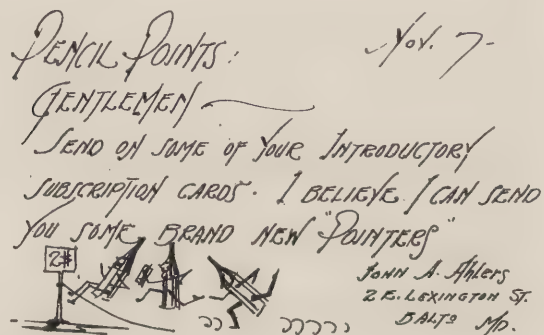 PENCIL POINTS: Nov. 7-
GENTLEMEN
SEND ON SOME OF YOUR INTRODUCTORY
SUBSCRIPTION CARDS. I BELIEVE I CAN SEND
YOU SOME BRAND NEW "POINTERS"
2#
JOHN A. Ahlers
2 E. LEXINGTON ST.
BALTO MD.